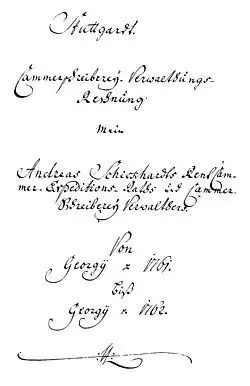 Stuttgardt.
Cammerschreiberey-Verwaltungs-
Rechnung
mein
Andreas Schickhardts Rent Cam-
mer. Expeditions-Raths und Cammer-
Schreiberey Verwalters.
Von
Georgÿ a. 1761.
Biß
Georgÿ a. 1762.